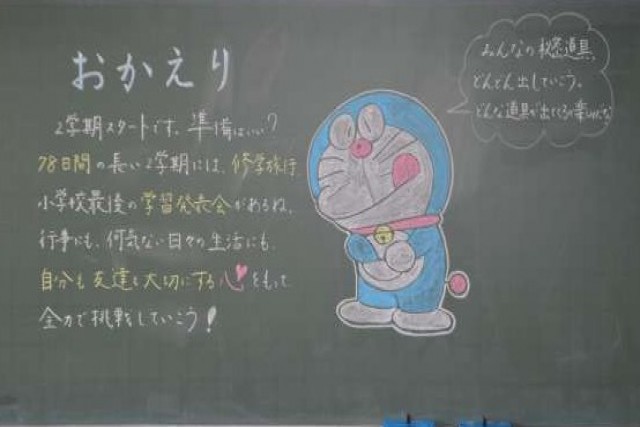 おかえり
2学期スタートです。準備はいい?
78日間の長い2学期には、修学旅行、
小学校最後の学習発表会があるね。
行事にも、何気ない日々の生活にも、
自分も友達も大切にする心をもって
全力で挑戦していこう!
みんなの秘密道具、
どんどん出していこう。
どんな道具が出てくるか楽しみだな